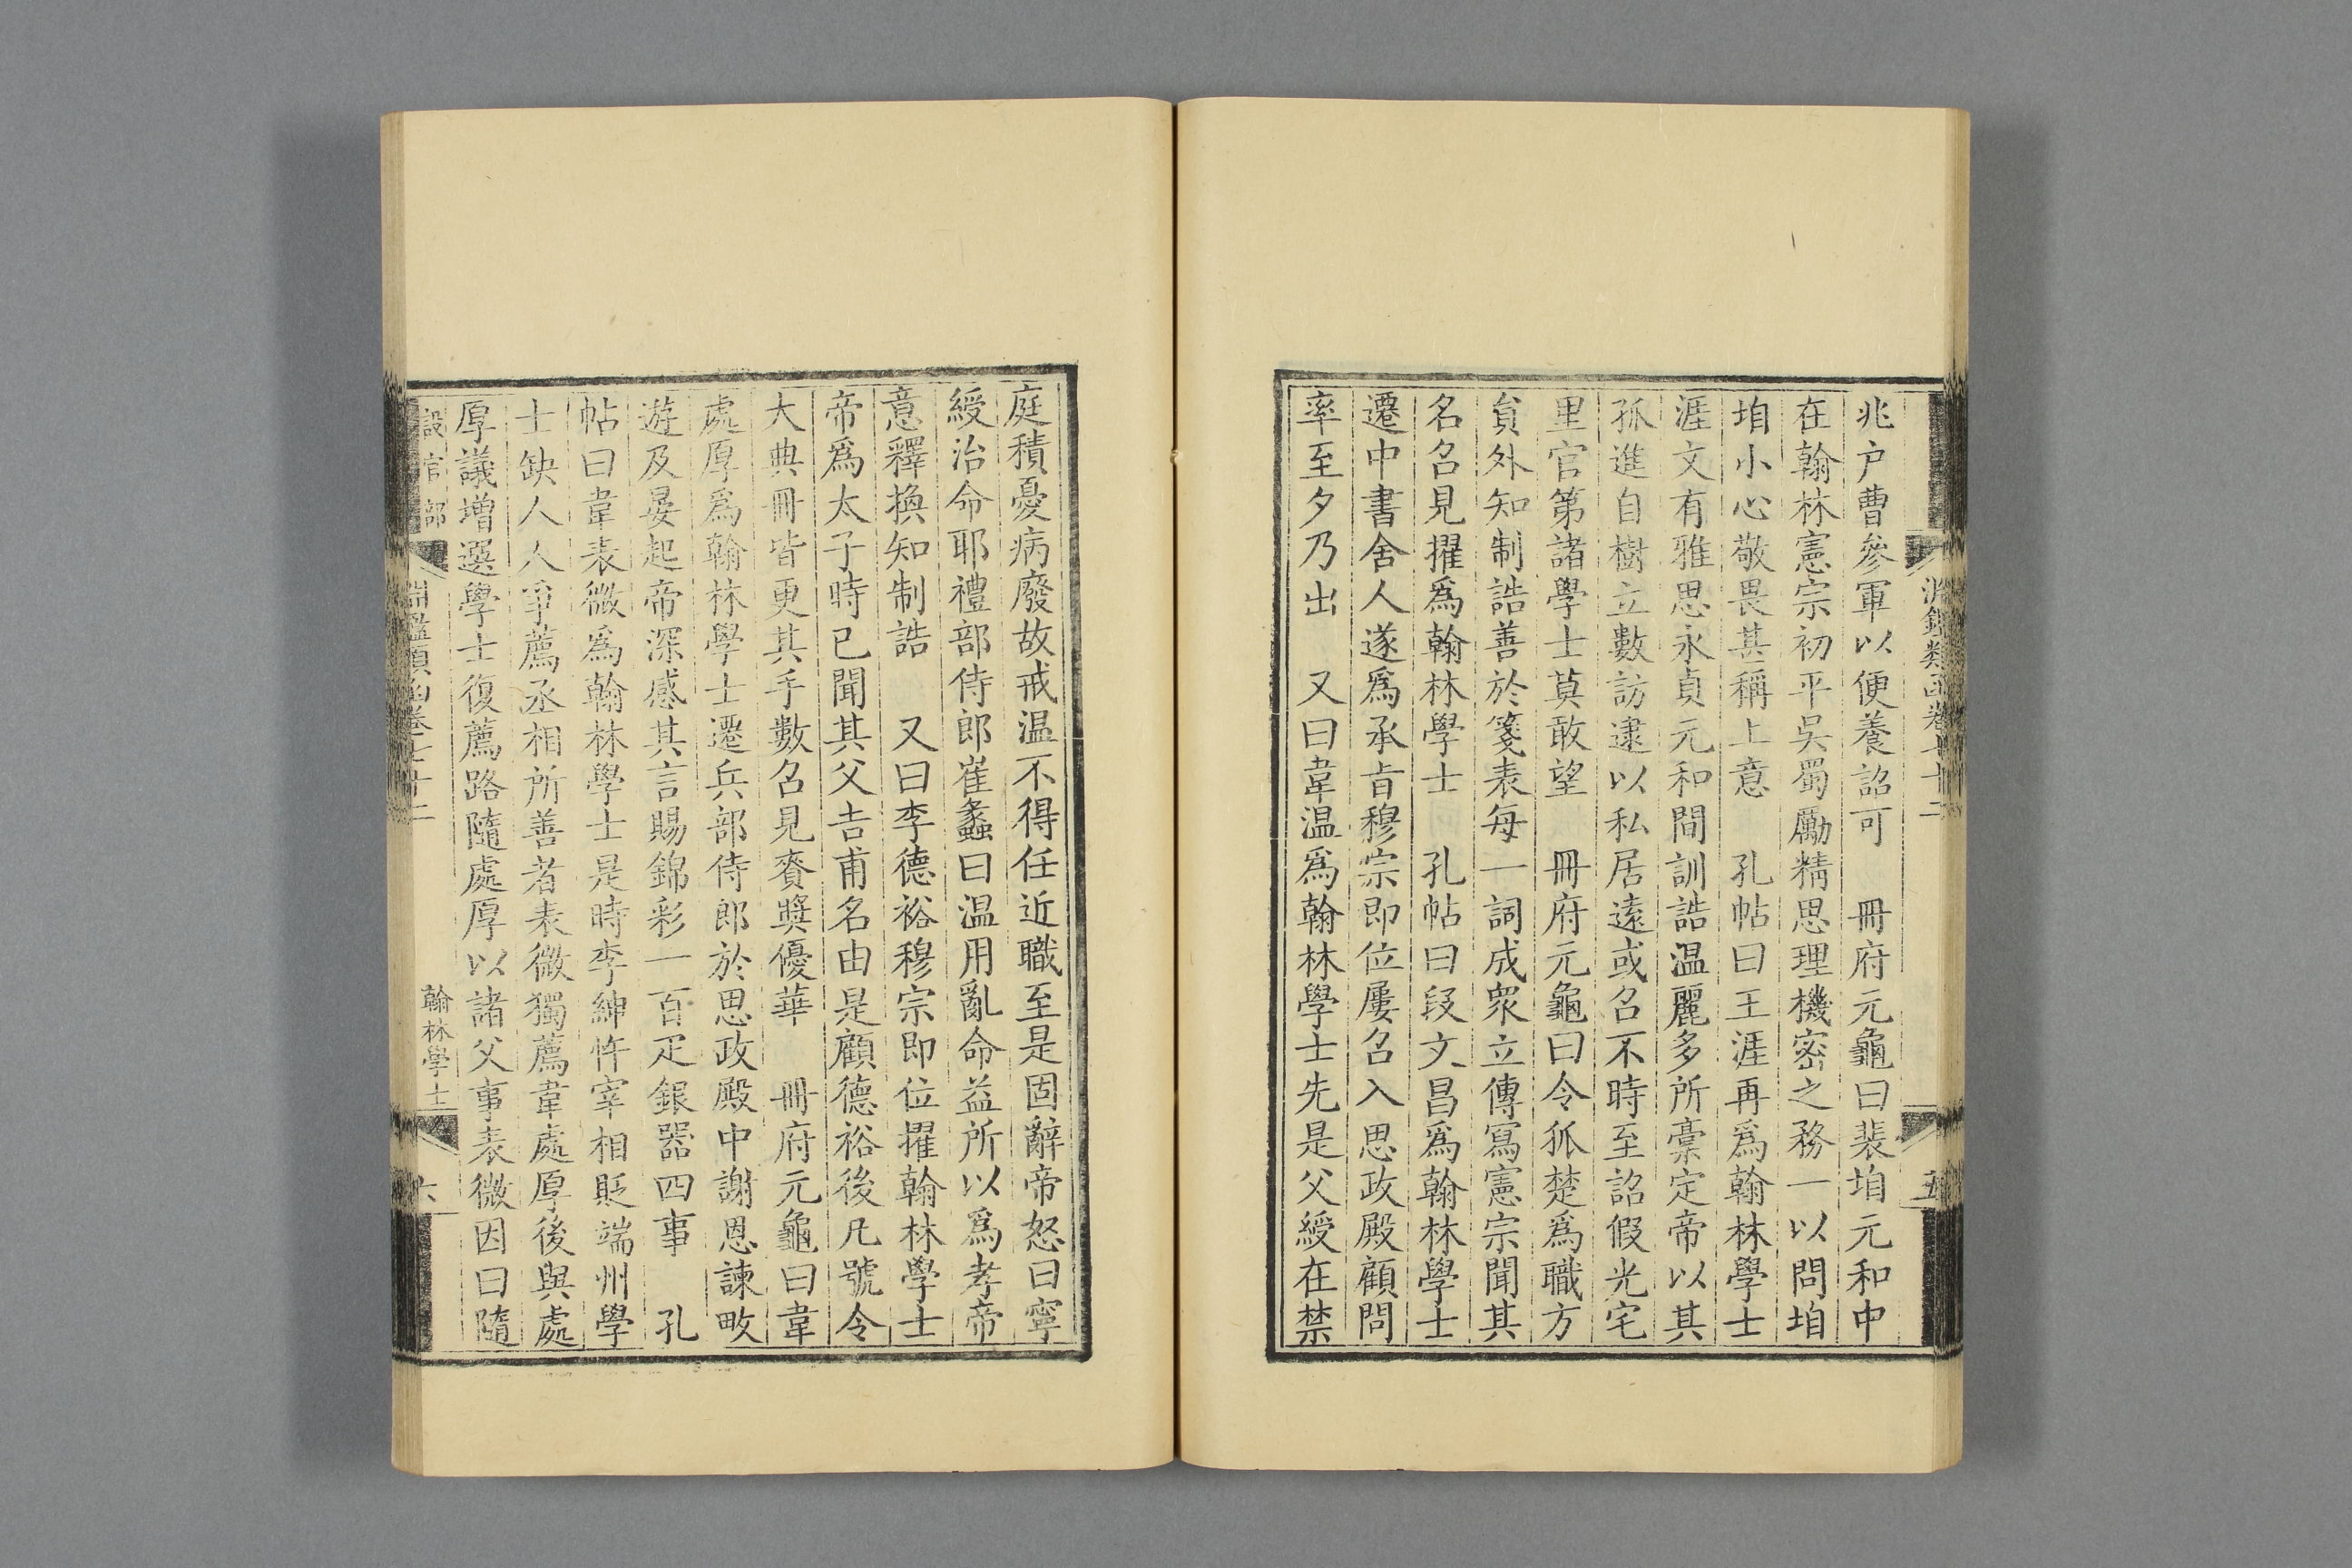 淵鑑類函卷七十二
五
兆户曹參軍以便養詔可　冊府元龜曰裴垍元和中
在翰林憲宗初平吳蜀勵精思理機密之務一以問垍
垍小心敬畏甚稱上意　孔帖曰王涯再爲翰林學士
涯文有雅思永貞元和間訓誥温麗多所稾定帝以其
孤進自樹立數訪逮以私居遠或召不時至詔假光宅
里官第諸學士莫敢望　冊府元龜曰令狐楚爲職方
貟外知制誥善於箋表每一詞成衆立傳寫憲宗聞其
名召見擢爲翰林學士　孔帖曰段文昌爲翰林學士
遷中書舍人遂爲承旨穆宗即位屢召入思政殿顧問
率至夕乃出　又曰韋温爲翰林學士先是父綬在禁
庭積憂病廢故戒温不得任近職至是固辭帝怒曰寧
綬治命耶禮部侍郎崔蠡曰温用亂命益所以爲孝帝
意釋換知制誥　又曰李德裕穆宗即位擢翰林學士
帝爲太子時已聞其父吉甫名由是顧德裕後凡號令
大典冊皆更其手數召見賚奬優華　冊府元龜曰韋
處厚爲翰林學士遷兵部侍郎於思政殿中謝恩諫畋
遊及晏起帝深感其言賜錦彩一百疋銀器四事　孔
帖曰韋表微爲翰林學士是時李紳忤宰相貶端州學
士缺人人爭薦丞相所善者表微獨薦韋處厚後與處
厚議增選學士復薦路隨處厚以諸父事表微因曰隨
設官部
淵鑑類函卷七十二
翰林學士
六